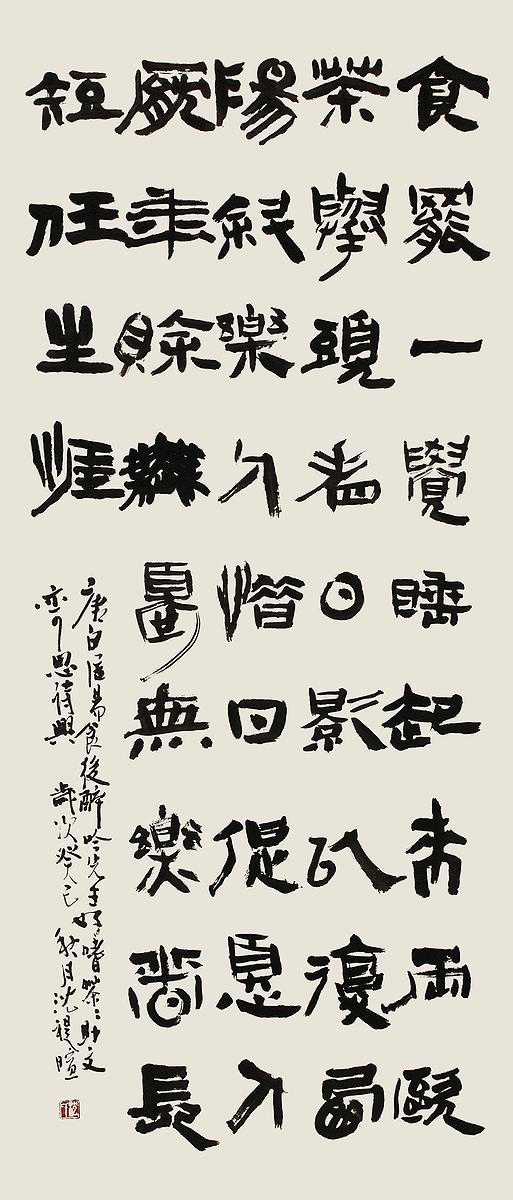 食罷一覺睡起來兩甌
茶擧頭看日影已復西
陽斜樂人惜日促憂人
厭年賒無憂無樂尚長
短任生涯
唐白居易食後醉吟先生好嗜茶〻助文
亦可思詩興 歲次癸巳秋月沈禔暄